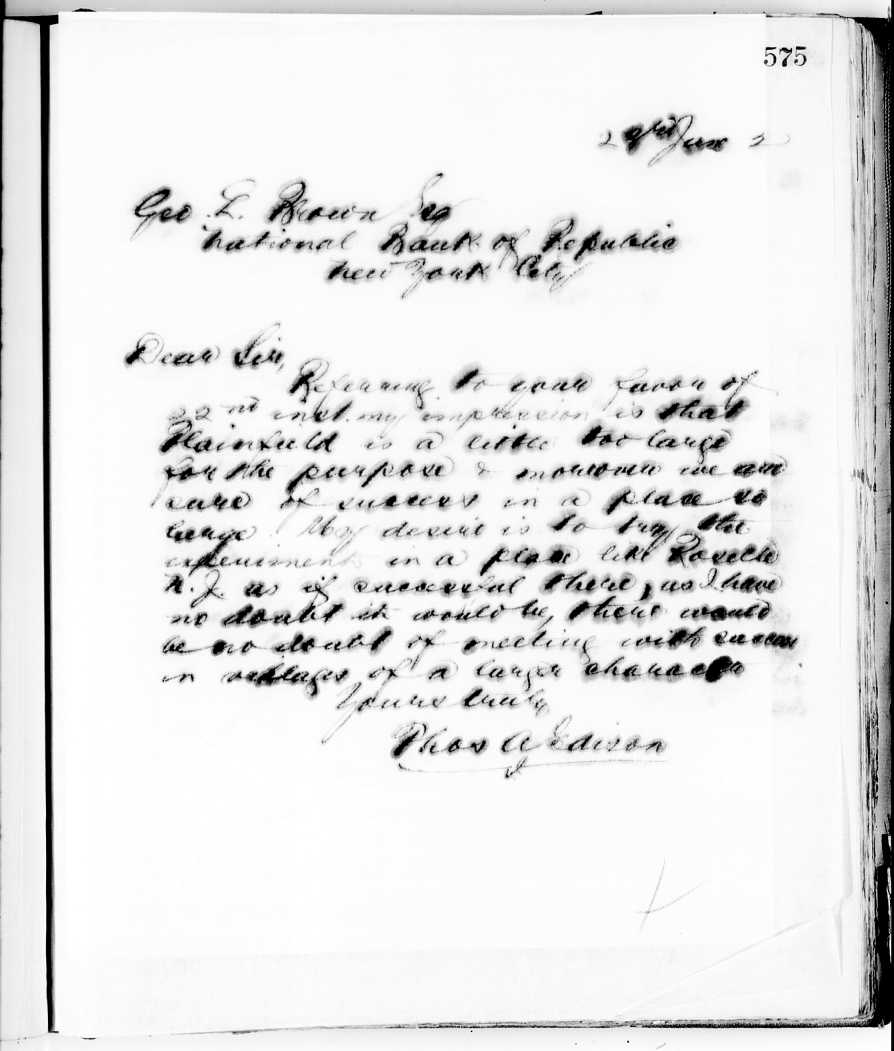 575
23rd June 2
Geo. L. Brown Esq
National Bank of Republic
New York City
Dear Sir,
Referring to your favor of
22nd inst. my impression is that
Plainfield is a little too large
for the purpose & moreover we are
sure of success in a place so
large. My desire is to try the
experiment in a place like Roselle
N. J. as if successful there, as I have
no doubt it would be, there would
be no doubt of meeting with success
in villages of a larger character
Yours truly
Thos A Edison